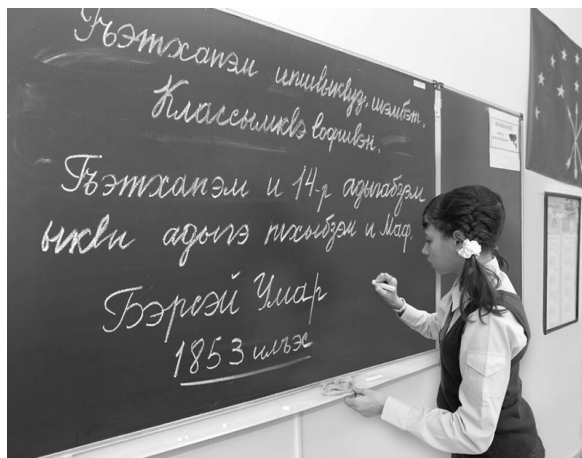 Гъэтхапэм ипшыкӏуз, щэмбэт.
Классымкӏэ лэжьыгъэн.
Гъэтхапэм и 14-р адыгабзэм
ыкӏи адыгэ тхыбзэм и Маф.
Бэрсэй Умар
1853 илъэс